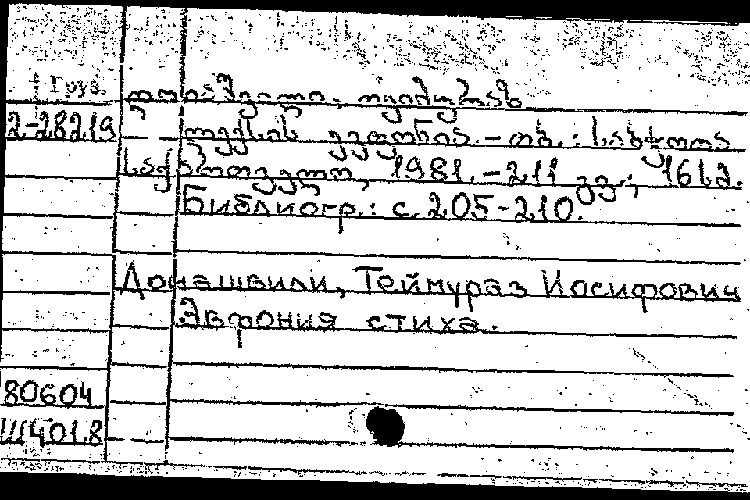 Груз.
დოიაშვილი, თეიმურაზ
2-28219
ლექსის ევფონია. – თბ.: საბჭოთა
საქართველო, 1981. – 211 გვ.; 16 სმ.
Библиогр.: с. 205-210.
Доиашвили, Теймураз Иосифович
Эвфония стиха.
80604
Ш401.8